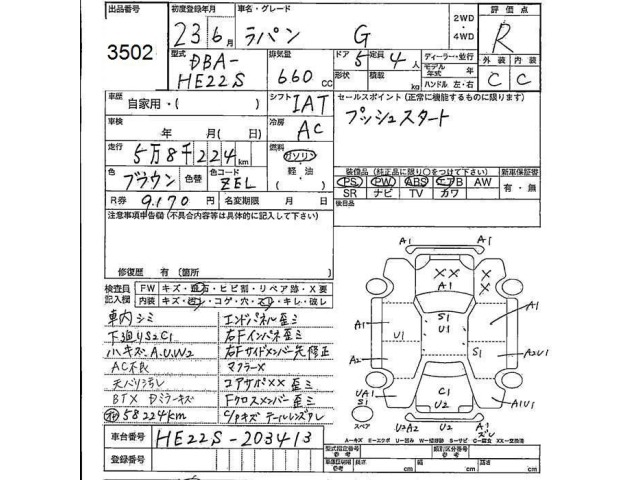 出品番号 初度登録年月 車名・グレード 2WD ・ 4WD 評価点
3502 23年6月 ラパン G R
型式 排気量 ドア 定員 ディーラー・並行
DBA-HE22S 660cc 5 4人 モデル年式 年
形状 積載 kg ハンドル 左・右 外装 内装
C C
車歴 自家用・( ) シフト IAT セールスポイント (正常に機能するものに限ります)
車検 年 月 冷房 AC プッシュスタート
走行 5万8千224km 燃料 ガソリン
軽油
( )
色 ブラウン 色替 色コード ZEL 装備品(純正品に限り○をつけて下さい) 新車保証書
PS PW ABS エアB AW 有・無
SR ナビ TV カワ
R券 9,170円 名変期限 月 日 後日品
注意事項申告欄(不具合内容等は具体的に記入して下さい)
修復歴 有 (箇所 )
検査員記入欄 FW キズ・飛石・ヒビ割・リペア跡・X要
内装 キズ・汚レ・コゲ・穴・スレ・キレ・破レ
車内シミ エンドパネル歪ミ
下廻りS2C1 右Fインパネ歪ミ
ハキズ、A.U.W2 右Fサイドメンバー先修正
AC不良 マフラーX
天バリ汚レ コアサポXX歪ミ
BTX Dミラーキズ Fクロスメンバー歪ミ
58224km C/Pキズ テールレンズワレ
A1 A1
XX X X
A1 A1
S1
U1
A1 U1 S1
A2 A2U1
UA1 S1 C1 A1U1
U2
U2A2 U2 A1
スペア
A=キズ E=エクボ U=凹み W=補修跡 S=サビ C=腐食 XX=交換済
車台番号 HE22S-203413
登録番号
型式指定番号 参考 類別区分番号 参考
車体図明記 参考 長さ cm 幅 cm 高さ cm